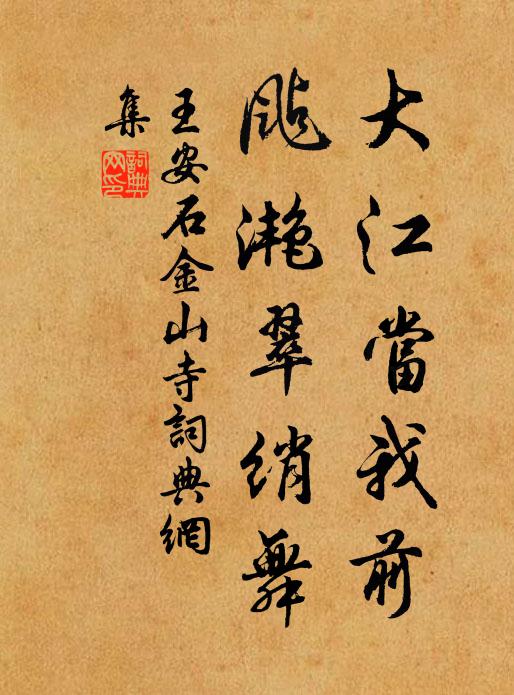 大江當我前
颭灔翠綃舞
王安石金山寺詞典網
集
詞典網印